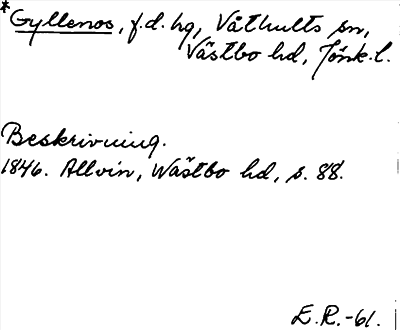 *Gyllenos, f.d. hg, Våthults sn,
Västbo hd, Jönk.l.
Beskrivning.
1846. Allvin, Wästbo hd, s. 88.
E.R.-61.